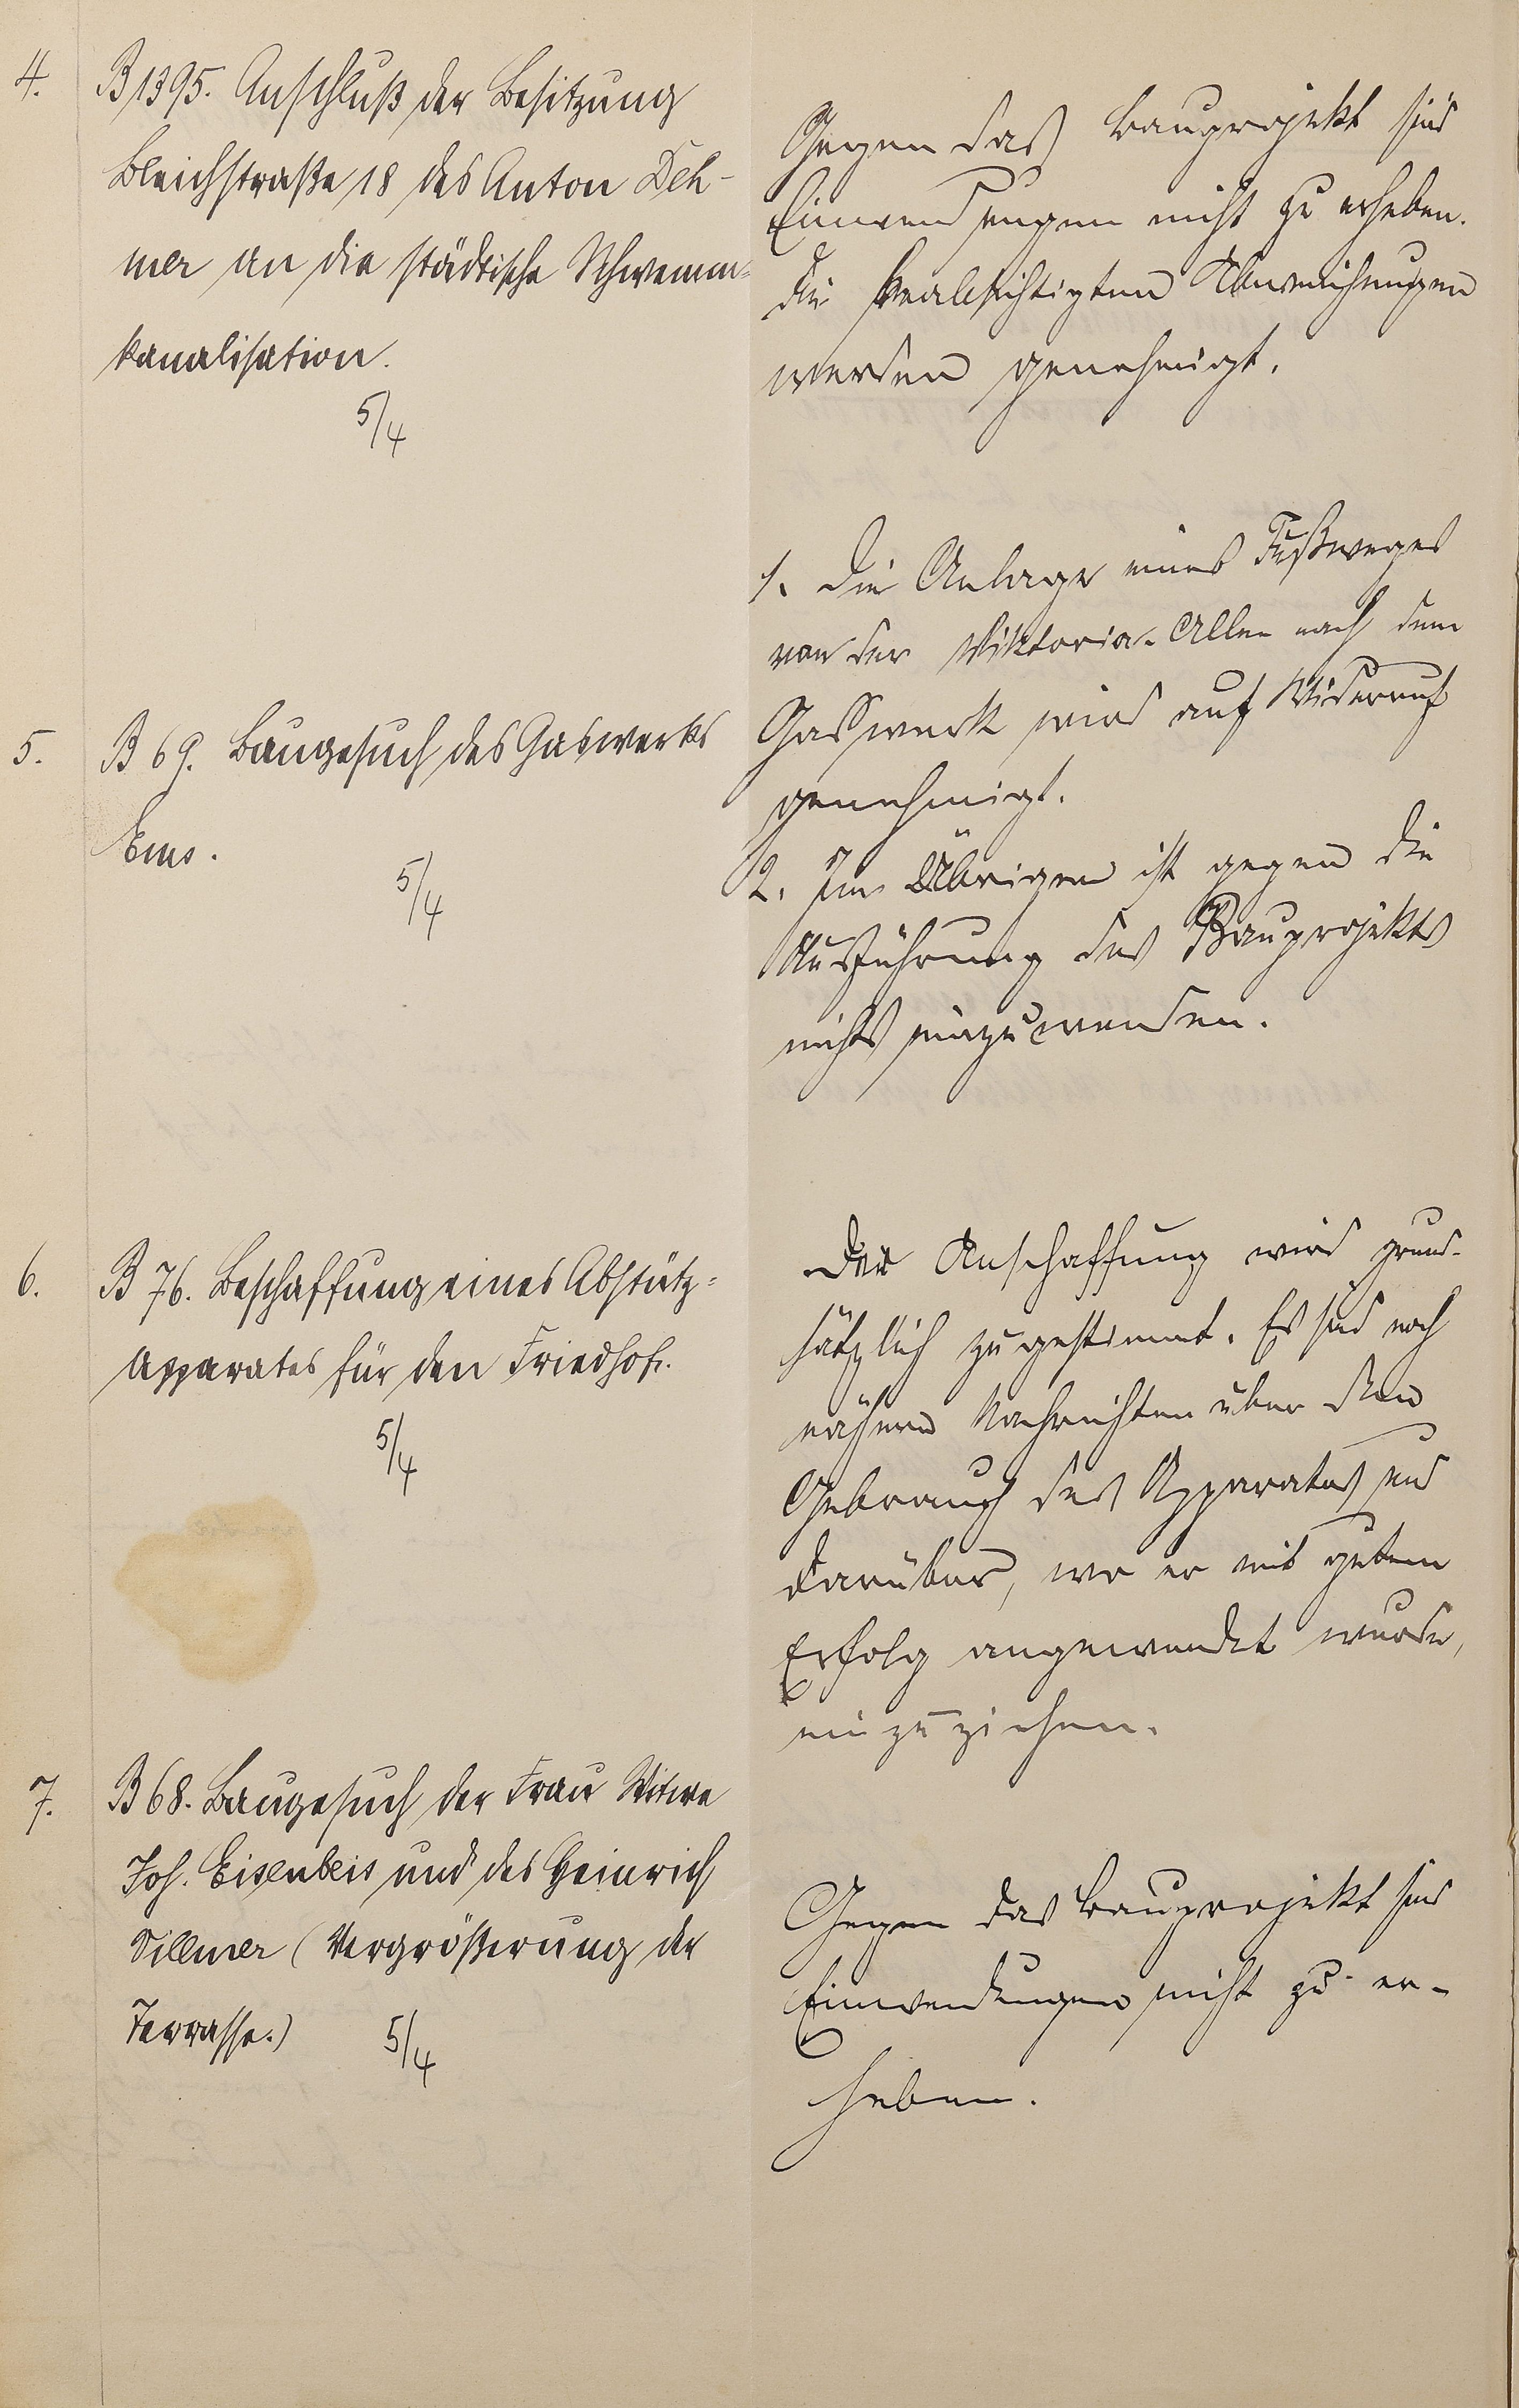 4.
B 1395. Anschluß der Besitzung
Bleichstraße 18 des Anton Deh-
mer an die städtische Schwemm-
kanalisation.
5/4
Gegen das Bauprojekt sind
Einwendungen nicht zu erheben.
Die beabsichtigten Abweichungen
werden genehmigt.
5.
B 69. Baugesuch des Gaswerks
Ems.
5/4
1. Die Anlage eines Fußweges
von der Viktoria-Allee nach dem
Gaswerk wird auf Widerruf
genehmigt.
2. Im Übrigen ist gegen die
Ausführung des Bauprojekts
nichts einzuwenden.
6.
B 76. Beschaffung eines Abstütz-
Apparates für den Friedhof.
5/4
Der Anschaffung wird grund-
sätzlich zugestimmt. Es sind noch
nähere Nachrichten über den
Gebrauch des Apparates und
darüber, wo er mit gutem
Erfolg angewendet wurde,
einzuziehen.
7.
B 68. Baugesuch der Frau Witwe
Joh. Eisenbeis und des Heinrich
Sillmer (Vergrößerung der
Terrasse.)
5/4
Gegen das Bauprojekt sind
Einwendungen nicht zu er-
heben.